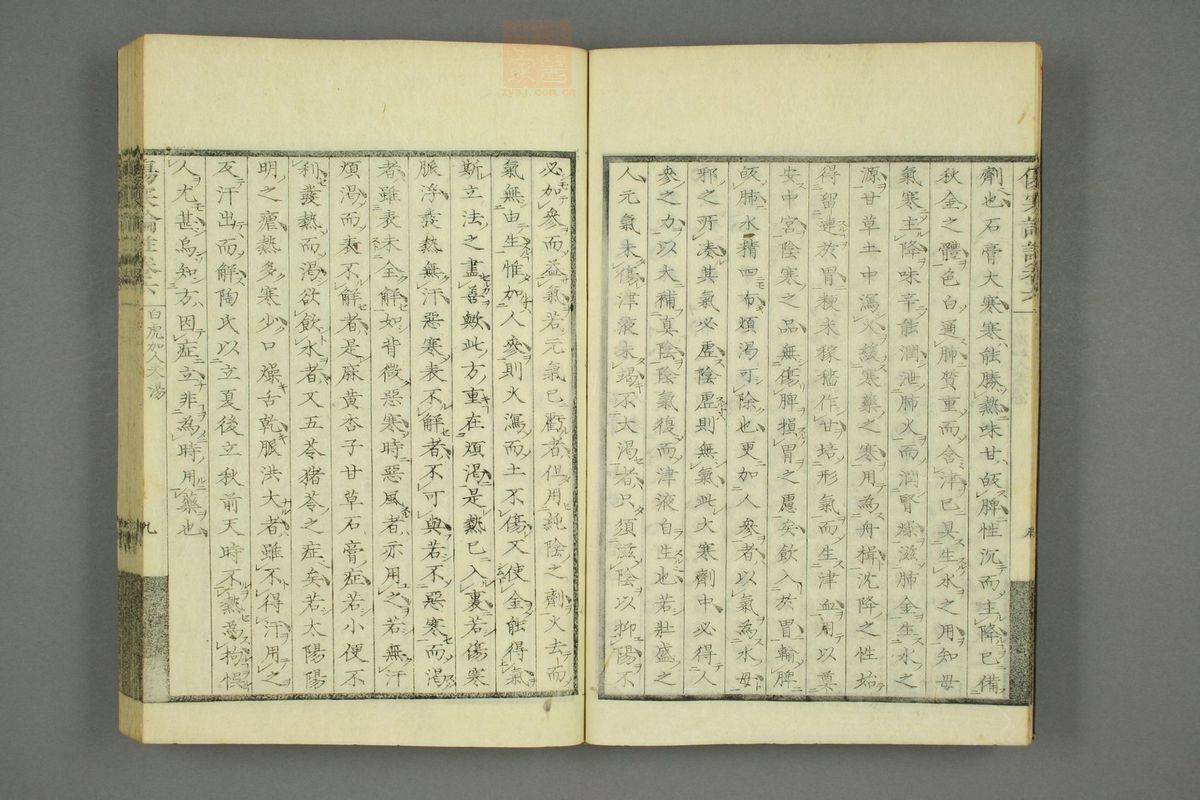 劑也石膏大寒寒能勝熱味甘皈脾性沉而主降已備
秋金之體色白通肺質重而含津已具生水之用知母
氣寒主降味辛能潤泄肺火而潤腎燥滋肺金生水之
源甘草土中瀉火緩寒藥之寒用為舟楫沈降之性始
得留連於胃粳米稼穡作甘培形氣而生津血用以奠
安中宮陰寒之品無傷脾損胃之慮矣飲入於胃輸脾
皈肺水精四布煩渴可除也更加人參者以氣為水母
邪之所湊其氣必虛陰虛則無氣此大寒劑中必得人
參之力以大補真陰陰氣復而津液自生也若壯盛之
人元氣未傷津液未竭不大渴者只須滋陰以抑陽不
必加參而益氣若元氣已虧者但用純陰之劑火去而
氣無由生惟加人參則火瀉而土不傷又使金能得氣
斯立法之盡善歟此方重在煩渴是熱已入裏若傷寒
脈浮發熱無汗惡寒表不解者不可與若不惡寒而渴
者雖表未全解如背微惡寒時惡風者亦用之若無汗
煩渴而表不解者是麻黃杏子甘草石膏症若小便不
利發熱而渴欲飲水者又五苓猪苓之症矣若太陽陽
明之瘧熱多寒少口燥舌乾脈洪大者雖不得汗用之
反汗出而解陶氏以立夏後立秋前天時不熱為拘悞
人尤甚烏知方因症立非為時用藥也
傷寒論註卷六
白虎加人参湯
九
zysj.com.cn